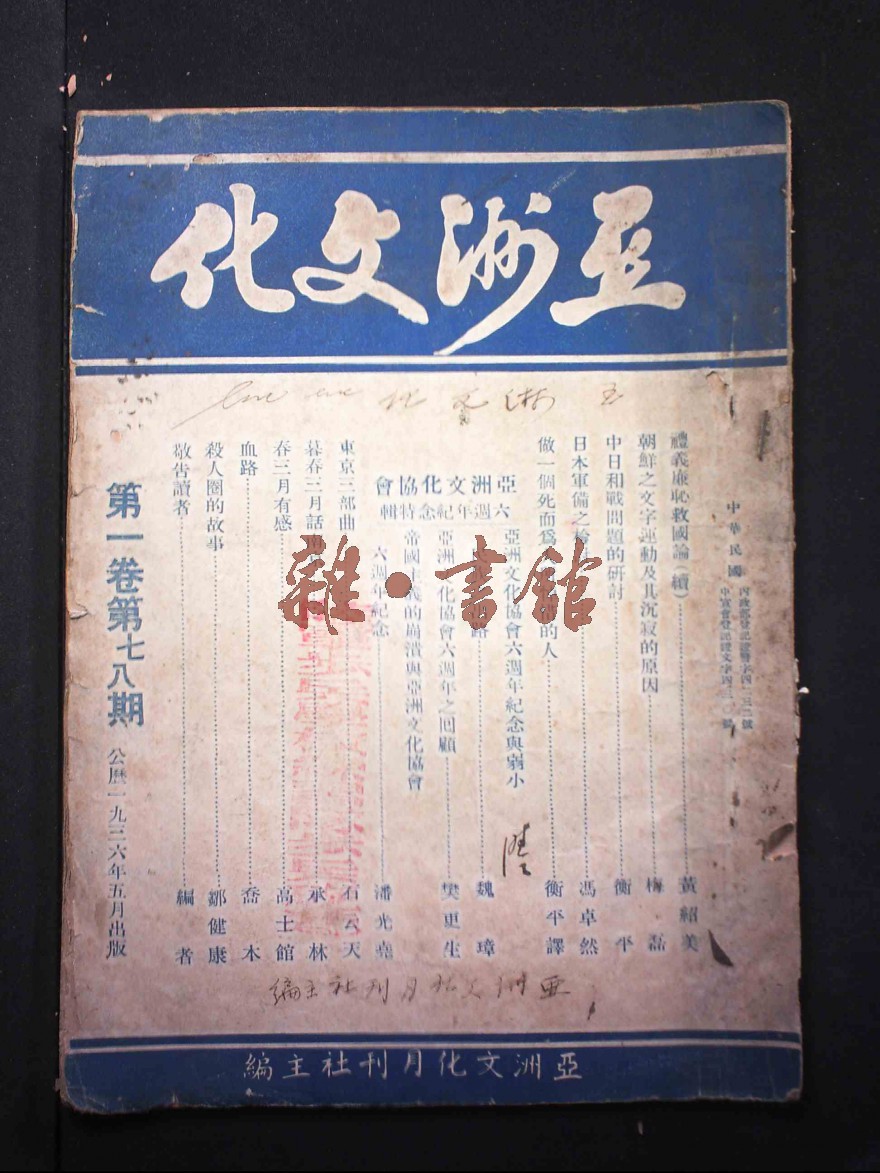 亞洲文化
亞洲文化
中華民國
禮義廉恥救國論(續)……黃紹美
朝鮮之文字運動及其沉寂的原因……梅磊
中日和戰問題的研討……衡平
日本軍備之……馮卓然
做一個死而爲……的人……衡平譯
亞洲文化協會
六週年紀念特輯
亞洲文化協會六週年紀念與弱小
路……魏璋
亞洲文化協會六週年之回顧……樊更生
帝國主義的崩潰與亞洲文化協會
六週年紀念……潘光堯
東京三部曲……石云天
暮春三月話南……承林
春三月有感……高士館
血路……喬木
殺人圈的故事……鄒健康
敬告讀者……編者
第一卷第七八期
公歷一九三六年五月出版
雜·書館
亞洲文化月刊社主編
亞洲文化月刊社主編